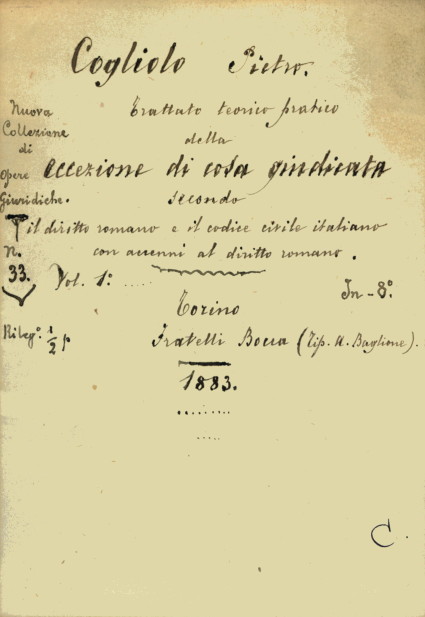 Cogliolo Pietro.
Nuova
Collezione
di
opere
Giuridiche.
N.
33.
Trattato teorico pratico
della
eccezione di cosa giudicata
secondo
il diritto romano e il codice civile italiano
con accenni al diritto romano.
Vol. 1º. ....
In-8º.
Torino
Rileg.º ½ p
Fratelli Bocca (Tip. U. Baglione).
1883.
C.